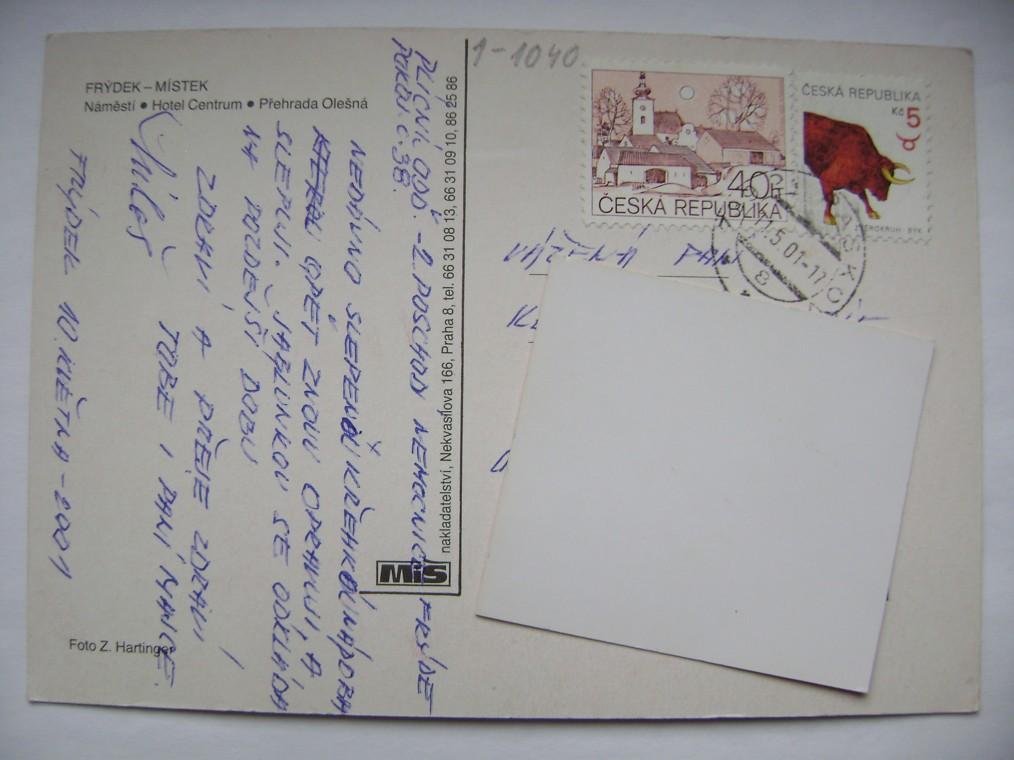 FRÝDEK – MÍSTEK
Náměstí • Hotel Centrum • Přehrada Olešná
PLICNÍ ODD. - 2. POSCHODÍ NEMOCNICE FRÝDE
POKOJ Č. 38
NEDÁVNO SLEPENOU KŘEHKOU NÁDOBA
OPĚT ZNOVU OPRAVUJI, A
SLEPUJI. ŠÁLINKOU SE ODKLÁDÁ
NA POZDĚJŠÍ DOBU
ZDRAVÍ A PŘEJE ZDRAVÍ
TOBĚ I PANÍ NANICE.
Miloš
FRÝDEK 10. KVĚTNA - 2001
Foto Z. Hartinger
nakladatelství, Nekvasilova 166, Praha 8, tel. 66 31 08 13, 66 31 09 10, 86 25 86
MiS
1-1040
40 h
ČESKA REPUBLIKA
ČESKÁ REPUBLIKA
Kč 5
ZVĚROKRUH - BÝK
11.5.01-17
PAN